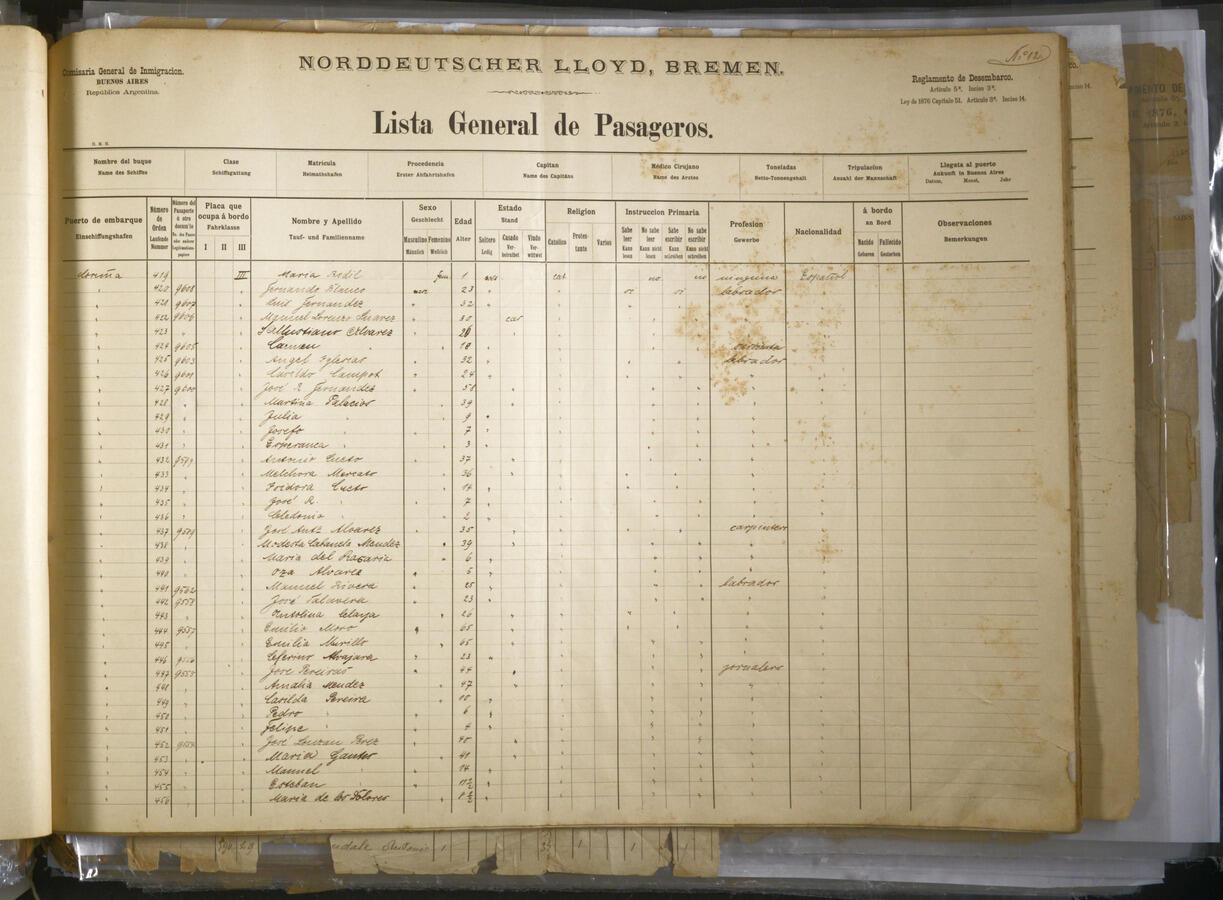 Nº 12
Comisaria General de Inmigracion.
BUENOS AIRES
República Argentina.
NORDDEUTSCHER LLOYD, BREMEN.
Reglamento de Desembarco.
Artículo 5º. Inciso 3º.
Ley de 1876 Capitulo 51. Artículo 3º. Inciso 14.
Lista General de Pasageros.
Nombre del buque Clase Matricula Procedencia Capitan Médico Cirujano Toneladas Tripulacion Llegata al puerto
Name des Schiffes Schiffsgattung Heimathshafen Erster Abfahrtshafen Name des Capitäns Name des Arztes Netto-Tonnengehalt Anzahl der Mannschaft Ankunft in Buenos Aires
Datum, Monat, Jahr
Puerto de embarque Número de Orden Placa que ocupa á bordo Nombre y Apellido Sexo Edad Estado Religion Instruccion Primaria Profesion Nacionalidad á bordo Observaciones
Einschiffungshafen Laufende Nummer Fahrklasse Tauf- und Familienname Geschlecht Alter Stand Gewerbe an Bord Bemerkungen
I II III Masculino Femenino Soltero Casado Viudo Catolica Protestante Varios Sabe leer No sabe leer Sabe escribir No sabe escribir Nacido Fallecido
Männlich Weiblich Ledig Verheirathet Verwittwet Kann lesen Kann nicht lesen Kann schreiben Kann nicht schreiben Geboren Gestorben
Coruña 419 III Maria Redil fem 1 cat no no ninguna Español
420 9608 Fernando Blanco 23 si si labrador
421 9607 Luis Fernandez 32
422 9606 Manuel Lorenzo Suarez 30 cas
423 Sallustiano Alvarez 26
424 9605 Carmen 18
425 9603 Angel Yglesias 32 labrador
426 9601 Casildo Campot 24
427 9600 José R. Fernandez 51
428 Martina Palacios 39
429 Julia 9
430 Josefo 7
431 Esperanca 3
432 9579 Antonio Cueto 37
433 Melchora Mercato 36
434 Isidora Cueto 14
435 José R. 7
436 Celedonia 2
437 9579 José Antº Alvarez 35 carpintero
438 Modesta Cabanela Mendez 39
439 Maria del Rosaria 6
440 Oza Alvarez 5
441 9562 Manuel Rivera 25 labrador
442 9558 José Talavera 23
443 Antolina Celaya 26
444 9557 Emilio Moro 65
445 Emilia Murillo 65
446 9556 Ceferino Alvajara 23
447 9555 José Pereiras 44 jornalero
448 Amalia Mendez 47
449 Casilda Pereira 10
450 Pedro 6
451 Felipe 4
452 José Louzan Perez 40
453 Maria Ganter 41
454 Manuel 14
455 Esteban 11½
456 Maria de los Dolores 1½